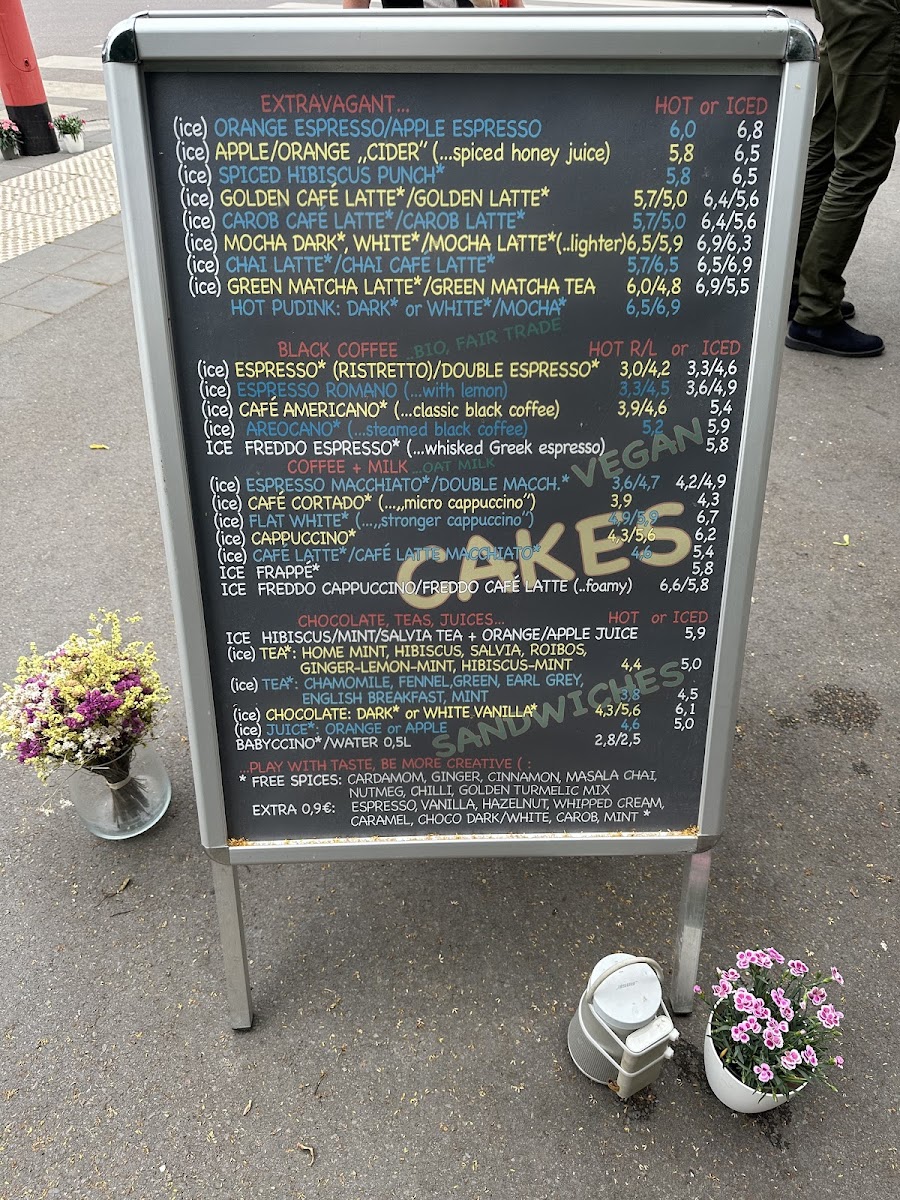 EXTRAVAGANT... HOT or ICED
(ice) ORANGE ESPRESSO/APPLE ESPRESSO 6,0 6,8
(ice) APPLE/ORANGE „CIDER" (...spiced honey juice) 5,8 6,5
(ice) SPICED HIBISCUS PUNCH* 5,8 6,5
(ice) GOLDEN CAFÉ LATTE*/GOLDEN LATTE* 5,7/5,0 6,4/5,6
(ice) CAROB CAFÉ LATTE*/CAROB LATTE* 5,7/5,0 6,4/5,6
(ice) MOCHA DARK*, WHITE*/MOCHA LATTE*(..lighter) 6,5/5,9 6,9/6,3
(ice) CHAI LATTE*/CHAI CAFÉ LATTE* 5,7/6,5 6,5/6,9
(ice) GREEN MATCHA LATTE*/GREEN MATCHA TEA 6,0/4,8 6,9/5,5
HOT PUDINK: DARK* or WHITE*/MOCHA* 6,5/6,9
BLACK COFFEE ...BIO, FAIR TRADE HOT R/L or ICED
(ice) ESPRESSO* (RISTRETTO)/DOUBLE ESPRESSO* 3,0/4,2 3,3/4,6
(ice) ESPRESSO ROMANO (...with lemon) 3,3/4,5 3,6/4,9
(ice) CAFÉ AMERICANO* (...classic black coffee) 3,9/4,6 5,4
(ice) AREOCANO* (...steamed black coffee) 5,2 5,9
ICE FREDDO ESPRESSO* (...whisked Greek espresso) 5,8
VEGAN
COFFEE + MILK ...OAT MILK
(ice) ESPRESSO MACCHIATO*/DOUBLE MACCH.* 3,6/4,7 4,2/4,9
(ice) CAFÉ CORTADO* (...„micro cappuccino") 3,9 4,3
(ice) FLAT WHITE* (...„stronger cappuccino") 4,9/5,9 6,7
(ice) CAPPUCCINO* 4,3/5,6 6,2
(ice) CAFÉ LATTE*/CAFÉ LATTE MACCHIATO* 4,6 5,4
CAKES
ICE FRAPPÉ* 5,8
ICE FREDDO CAPPUCCINO/FREDDO CAFÉ LATTE (..foamy) 6,6/5,8
CHOCOLATE, TEAS, JUICES... HOT or ICED
ICE HIBISCUS/MINT/SALVIA TEA + ORANGE/APPLE JUICE 5,9
(ice) TEA*: HOME MINT, HIBISCUS, SALVIA, ROIBOS,
GINGER-LEMON-MINT, HIBISCUS-MINT 4,4 5,0
(ice) TEA*: CHAMOMILE, FENNEL,GREEN, EARL GREY,
ENGLISH BREAKFAST, MINT 3,8 4,5
SANDWICHES
(ice) CHOCOLATE: DARK* or WHITE VANILLA* 4,3/5,6 6,1
(ice) JUICE*: ORANGE or APPLE 4,6 5,0
BABYCCINO*/WATER 0,5L 2,8/2,5
...PLAY WITH TASTE, BE MORE CREATIVE ( :
* FREE SPICES: CARDAMOM, GINGER, CINNAMON, MASALA CHAI,
NUTMEG, CHILLI, GOLDEN TURMELIC MIX
EXTRA 0,9€: ESPRESSO, VANILLA, HAZELNUT, WHIPPED CREAM,
CARAMEL, CHOCO DARK/WHITE, CAROB, MINT *